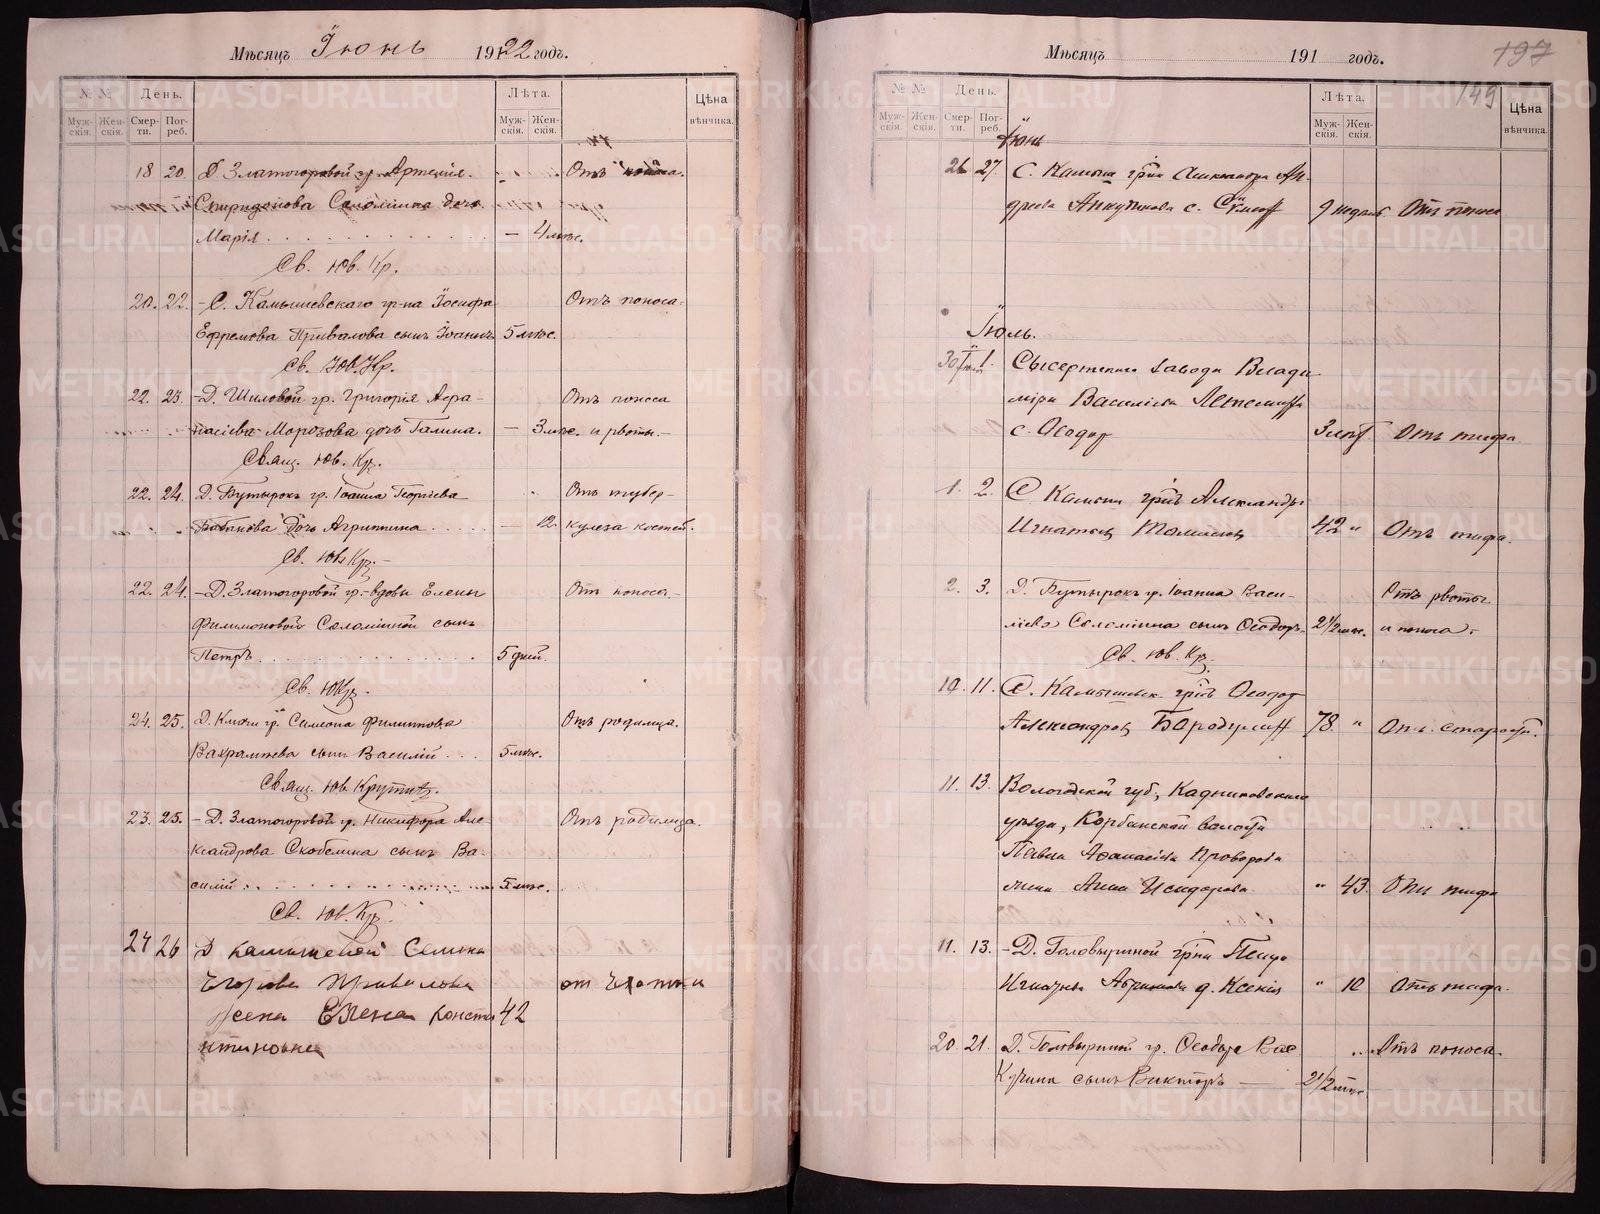 Мѣсяцъ Іюнь 1922 годъ.
№ № День. Лѣта. Цѣна вѣнчика.
Муж-скія. Жен-скія. Смер-ти. Пог-реб. Муж-скія. Жен-скія.
18 20. Д. Златогоровой гр. Артемія Отъ поноса.
Спиридонова Соломина дочь
Марія — 4 мѣс.
Св. Юв. Кр.
20. 22. С. Камышевскаго гр-на Іосифа Отъ поноса
Ефремова Привалова сынъ Іоаннъ 5 мѣс.
Св. Юв. Кр.
22. 23. Д. Шиловой гр. Григорія Аѳа- Отъ поноса
насіева Морозова дочь Галина. — 3 мѣс. и рвоты.
Свящ. Юв. Кр.
22. 24. Д. Бутырокъ гр. Іоанна Георгіева Отъ тубер-
дочь Агриппина — 12. кулеза костей.
Св. Юв. Кр.
22. 24. Д. Златогоровой гр. вдовы Елены Отъ поноса.
Филимоновой Соломиной сынъ
Петръ 5 дней.
Св. Ю Кр.
24. 25. Д. Ключи гр. Симеона Филиппова Отъ родимца.
Вахрамѣева сынъ Василій 5 мѣс.
Свящ. Юв. Крутик.
23. 25. Д. Златогоровой гр. Никифора Але Отъ родимца.
ксандрова Скобелина сынъ Ва-
силій 5 мѣс.
Св. Юв. Кр.
24 26 Д Камышевой Семена
Егорова Привалова от
жена Елена Конста 42
нтиновна
Мѣсяцъ 191 годъ.
197
149
№ № День. Лѣта. Цѣна вѣнчика.
Муж-скія. Жен-скія. Смер-ти. Пог-реб. Муж-скія. Жен-скія.
Іюнь
26 27. С. Камыш гр-на Александра Ан-
дреева с. 9 недѣль Отъ поноса
Іюль.
30 Іюня 1. Сысертскаго завода Влади
міра Василіева
с. Ѳеодор 3 лѣт Отъ тифа
1. 2. С Камыш гр-нъ Александръ
Игнатьев 42 " Отъ тифа.
2. 3. Д. Бутырокъ гр. Іоанна Васи- Отъ рвоты
ліева Соломина сынъ Ѳеодоръ 2 1/2 мѣс. и поноса.
Св. Юв. Кр.
10. 11. С. Камышевск. гр-нъ Ѳеодор
Александров Бородулин 78. " Отъ старости.
11. 13. Вологодской губ, Кадниковскаго
уѣзда, Корбанской волости
Павла Аѳанасіева
жена Анна Исидорова " 43. Отъ тифа
11. 13. Д. Головыриной гр-на Петра
Игнатьева Абрамова д. Ксенія " 10 Отъ тифа.
20. 21. Д. Головыриной гр. Ѳеодора Отъ поноса.
сынъ Викторъ — 2 1/2 мѣс.
METRIKI.GASO-URAL.RU